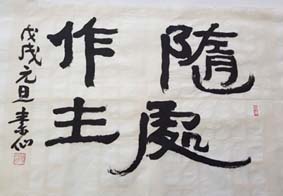 隨處
作主
戊戌元旦素仙